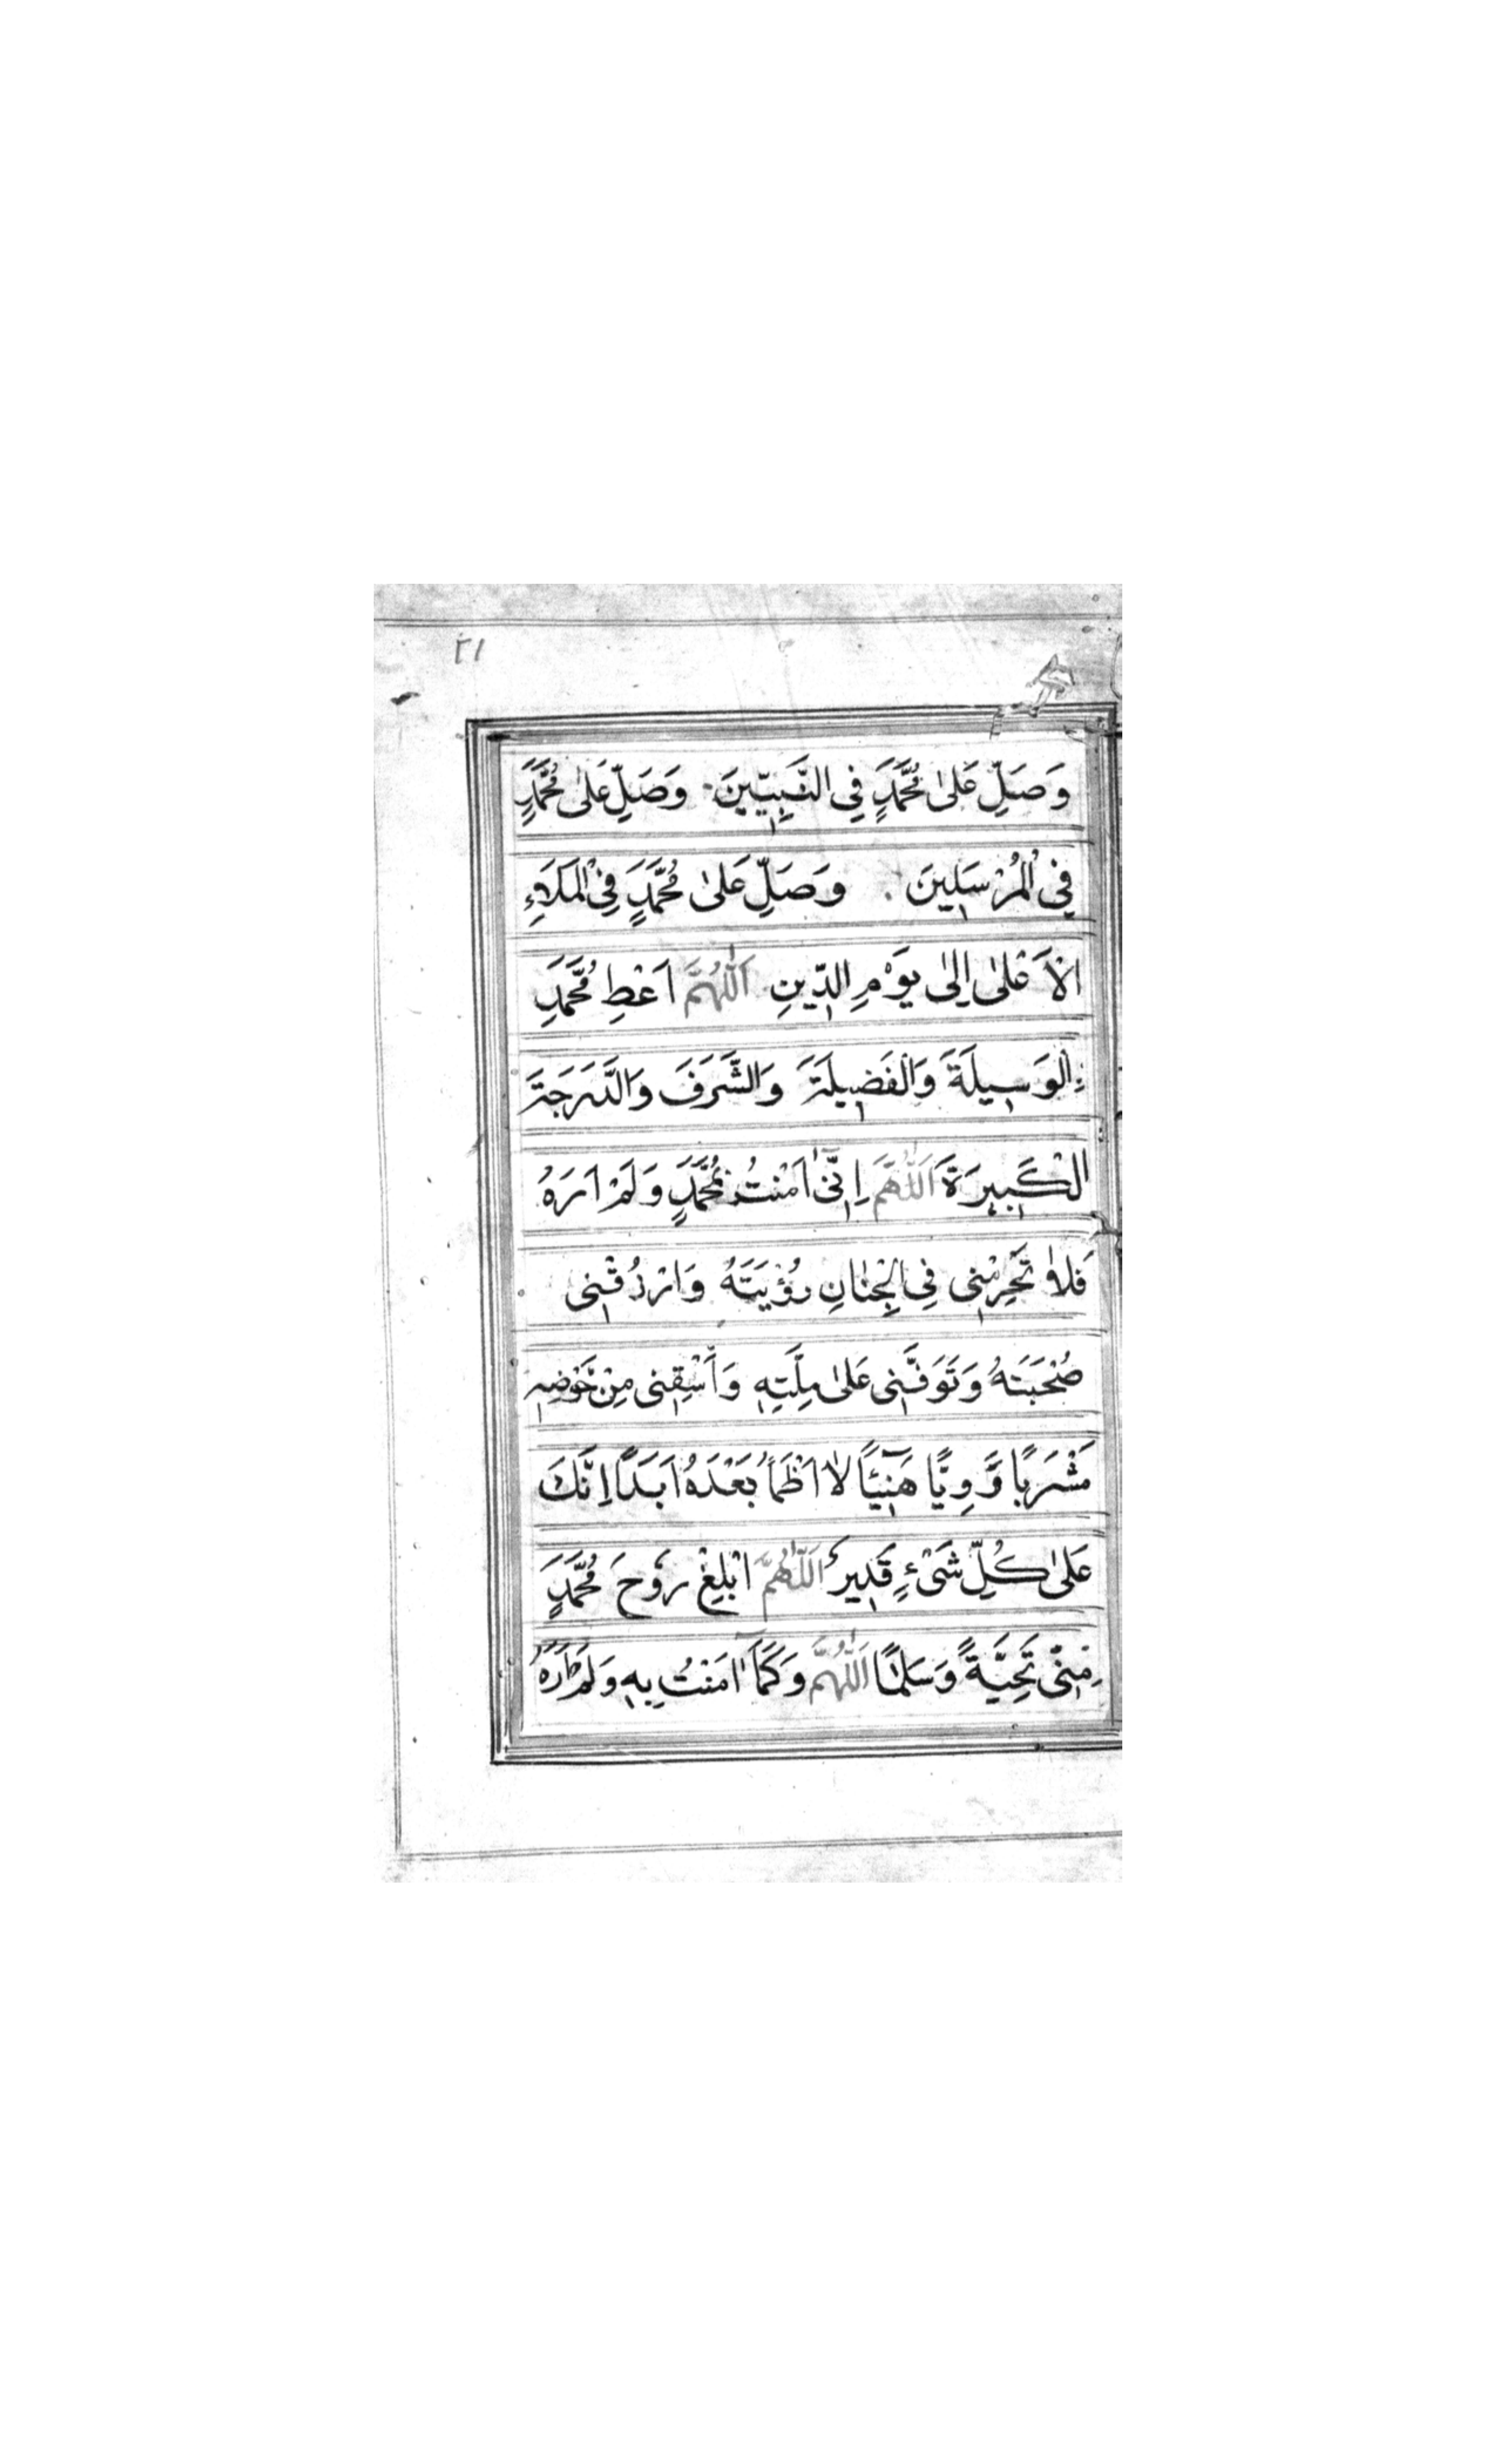 ٢١
وَصَلِّ عَلىٰ مُحَمَّدٍ فِى النَّبِيّٖينَ وَصَلِّ عَلىٰ مُحَمَّدٍ
فِى الْمُرْسَلٖينَ وَصَلِّ عَلىٰ مُحَمَّدٍ فِى الْمَلَاءِ
الْاَعْلىٰ اِلىٰ يَوْمِ الدّٖينِ اَللّٰهُمَّ اَعْطِ مُحَمَّدَ
ِالْوَسٖيلَةَ وَالْفَضٖيلَةَ وَالشَّرَفَ وَالدَّرَجَةَ
الْكَبٖيرَةَ اَللّٰهُمَّ اِنّٖى اٰمَنْتُ بِمُحَمَّدٍ وَلَمْ اَرَهُ
فَلَا تَحْرِمْنٖى فِى الْجِنَانِ رُؤْيَتَهُ وَارْزُقْنٖى
صُحْبَتَهُ وَتَوَفَّنٖى عَلىٰ مِلَّتِهٖ وَاَسْقِنٖى مِنْ حَوْضِهٖ
مَشْرَبًا رَوِيًّا هَنٖيئًا لَا اَظْمَأُ بَعْدَهُ اَبَدًا اِنَّكَ
عَلىٰ كُلِّ شَىْءٍ قَدٖيرٌ اَللّٰهُمَّ ابْلِغْ رُوحَ مُحَمَّدٍ
مِنّٖى تَحِيَّةً وَسَلَامًا اَللّٰهُمَّ وَكَمَا اٰمَنْتُ بِهٖ وَلَمْ اَرَهُ